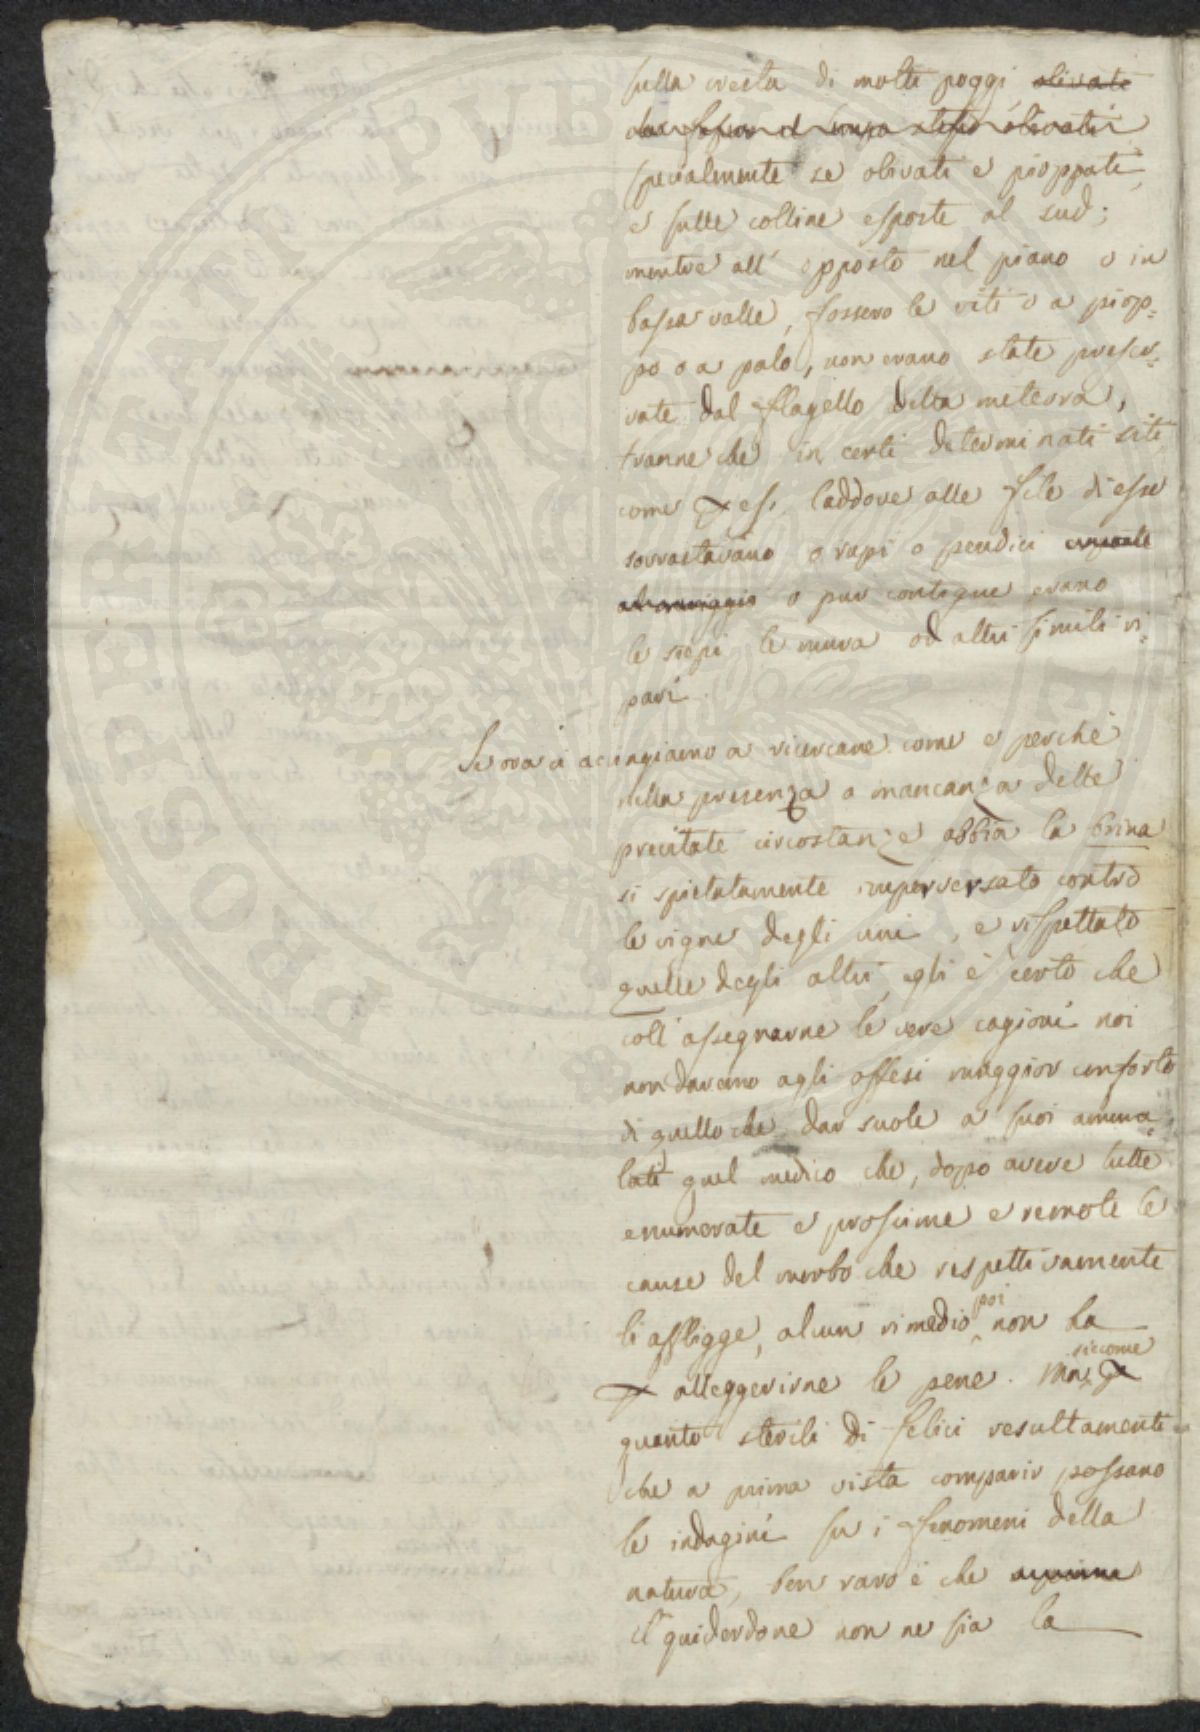 sulla cresta di molti poggi olivati
specialmente se olivati e pioppati,
e sulle colline esposte al sud;
mentre all' opposto nel piano o in
bassa valle, fossero le viti o a piop=
po o a palo, non erano state preser=
vate dal flagello della meteora,
tranne che in certi determinati siti,
come p es. laddove alle file di esse
sovrastavano o rupi o pendici
o pur contigue erano
le siepi le mura od altri simili ri=
pari.
Se ora ci accingiamo a ricercare come e perchè
nella presenza o mancanza delle
precitate circostanze abbia la brina
si spietatamente imperversato contro
le vigne degli uni, e rispettato
quelle degli altri, egli è certo che
coll' assegnarne le vere cagioni noi
non daremo agli offesi maggior conforto
di quello che dar suole a suoi amma=
lati quel medico che, dopo avere tutte
enumerate e prossime e remote le
cause del morbo che respettivamente
li affligge, alcun rimedio poi non ha
p alleggerirne le pene. Ma, siccome p
quanto sterili di felici resultamenti
che a prima vista comparir possano
le indagini su i fenomeni della
natura, ben raro è che
il guiderdone non ne sia la
PROSPERITATI PVBL